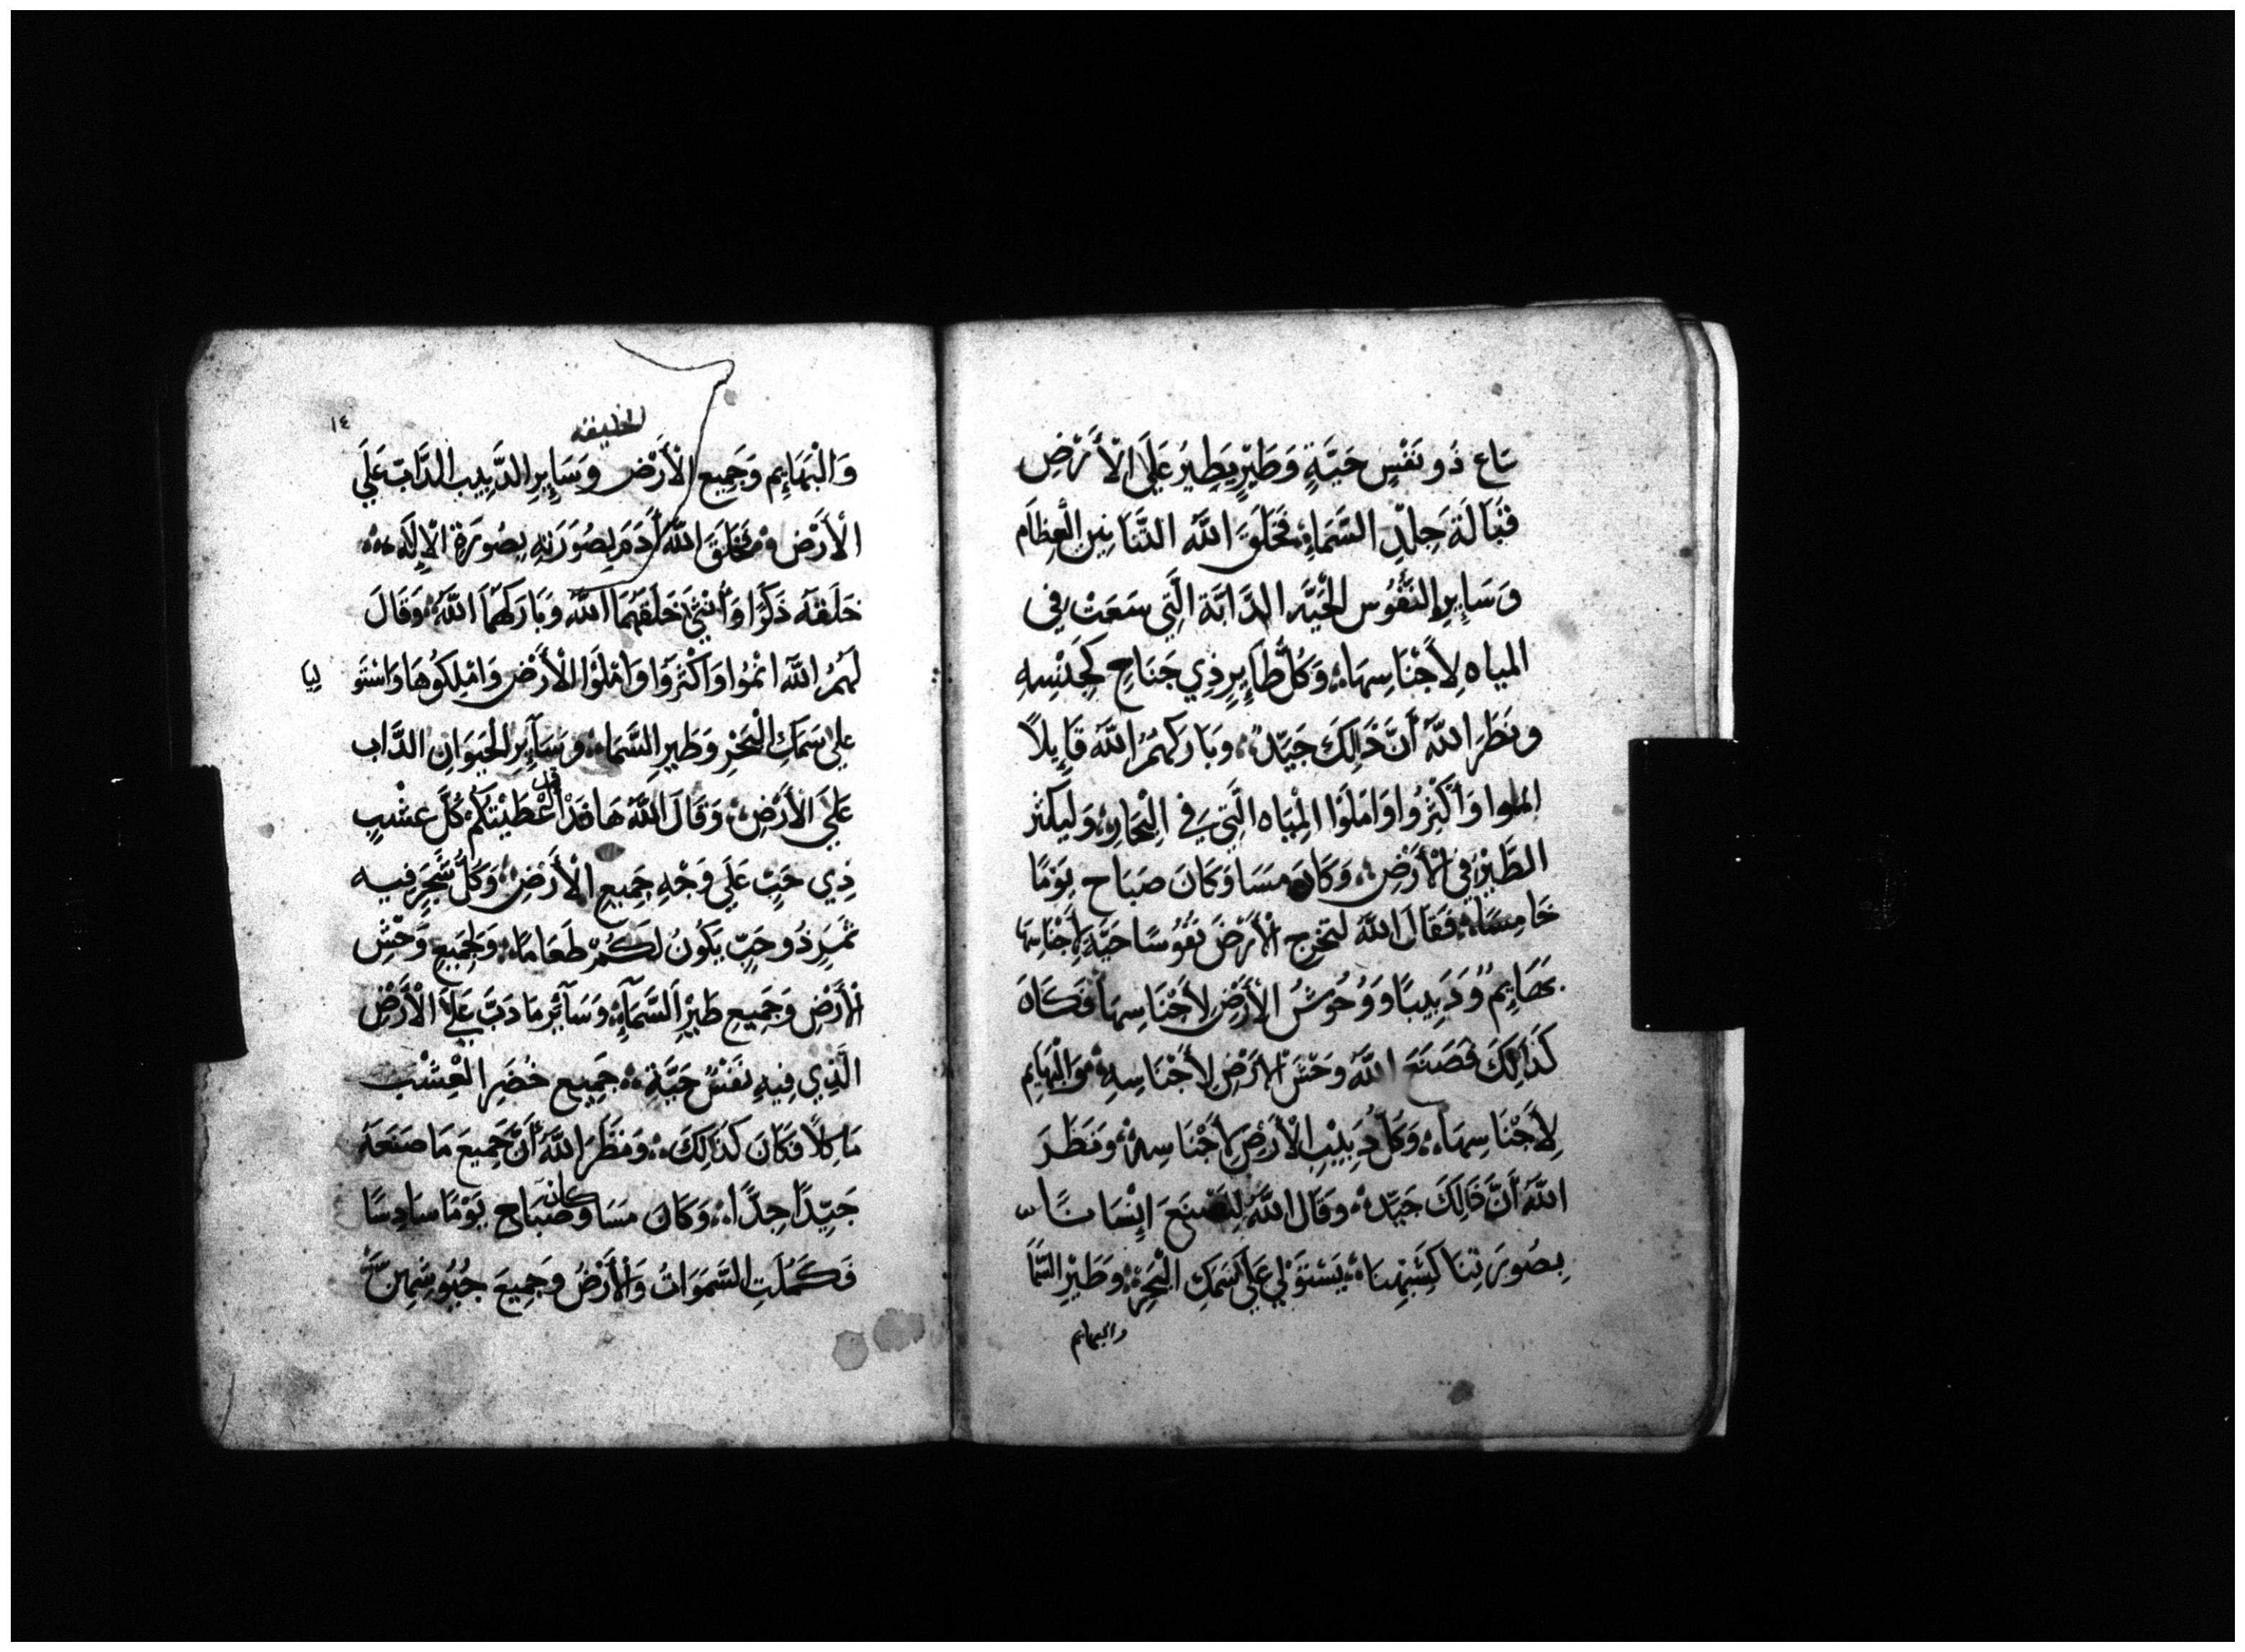 ساع ذُو نَفْسٍ حَيَّةٍ وَطَيْرٍ يَطِيرُ عَلَى الْأَرْضِ
قُبَالَةَ جِلْدِ السَّمَاءِ، فَخَلَقَ اللَّهُ التَّنَانِينِ الْعِظَام
وَسَايِرِ النُّفُوسِ الْحَيَّه الدَّابَّة الَّتِي سَعَتْ فِي
المياه لِأَجْنَاسِهَا، وَكُلَّ طَايِرٍ ذِي جَنَاحِ لِجِنْسِهِ
وَنَظَرَ اللَّهُ أَنَّ ذَالِكَ جَيِّدٌ، وَبَارَكَهُمُ اللَّهُ قَايِلاً
وَأَكْثِرُوا وَامْلَوْا الْمِيَاه الَّتِي فِي الْبِحَارِ، وَلْيَكْثُر
الطَّيْرُ فِي الْأَرْضِ، وَكَانَ مَسَا وَكَانَ صَبَاح يَوْمًا
خَامِسًا، فَقَالَ اللَّهُ لِتُخْرِج الْأَرْضُ نُفُوسًا حَيَّة لِأَجْنَاسِهَا
بَهَايِمٌ وَدَبِيبًا وَوُحُوشُ الْأَرْضِ لِأَجْنَاسِهَا فَكَانَ
كَذَالِكَ فَصَنَعَ اللَّهُ وَحْشَ الْأَرْضِ لِأَجْنَاسِهِ، وَالْبَهَايِم
لِأَجْنَاسِهَا، وَكُلُّ دَبِيبِ الْأَرْضِ لِأَجْنَاسِهِ، وَنَظَرَ
اللَّهُ أَنَّ ذَالِكَ جَيِّدٌ، وَقَالَ اللَّهُ لِنَصْنَعَ إِنْسَانًا
بِصُورَتِنَا كَشِبْهِنَا، يَسْتَوْلِي عَلَى سَمَكِ الْبَحْرِ، وَطَيْرِ السَّمَا
والبهايم
١٤
الخليقه
وَالْبَهَايِم وَجَمِيع الْأَرْضِ وَسَايِرِ الدَّبِيبِ الدَّابّ عَلَي
الْأَرْض، فَخَلَقَ اللَّهُ أَدَمَ بِصُورَتِهِ بِصُورَةِ الْإِلَه،
خَلَقَهُ ذَكَرًا وَأُنْثَى خَلَقَهُمَا اللَّهُ وَبَارَكَهُمَا اللَّهُ، وَقَالَ
لَهُمُ اللَّهُ انْمُوا وَاكْثَرُوا وَامْلَوْا الْأَرْضَ وَامْلِكُوهَا وَاسْتَو لِيَا
عَلَى سَمَكِ الْبَحْرِ وَطَيْرِ السَّمَاء، وَسَايِرِ الْحَيَوَانِ الدَّاب
عَلَي الْأَرْضِ، وَقَالَ اللَّهُ هَا قَدْ أَعْطَيْتُكُمْ كُلَّ عُشْبٍ
ذِي حَبٍّ عَلَي وَجْهِ جَمِيعِ الْأَرْضِ، وَكُلَّ شَجَرٍ فيه
ثَمَرٍ ذُو حَبٍّ يَكُونُ لَكُمْ طَعَامًا، وَلِجَمِيعِ وَحْشِ
الْأَرْضِ وَجَمِيعِ طَيْرِ السَّمَاءِ، وَسَايِرِ مَا دَبَّ عَلَى الْأَرْضِ
الَّذِي فِيهِ نَفْسٌ حَيَّةٌ، جَمِيع خُضَرِ الْعُشْب
مَاكِلًا فَكَانَ كَذَالِكَ، وَنَظَرَ اللَّهُ أَنَّ جَمِيعَ مَا صَنَعَهُ
جَيِّدًا جِدًّا، وَكَانَ مَسَا وَكَانَ صَبَاح يَوْمًا سَادِسًا
فَكَمُلَتِ السَّمَوَاتُ وَالْأَرْضُ وَجَمِيعَ جُيُوشِهِنَّ